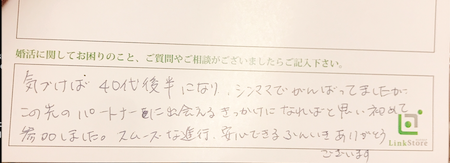 婚活に関してお困りのこと、ご質問やご相談がございましたらご記入下さい。
気づけば40代後半になり、シンママでがんばってましたが
この先のパートナーに出会えるきっかけになればと思い初めて
参加しました。スムーズな進行、安心できるふんいきありがとう
ございます
LinkStore